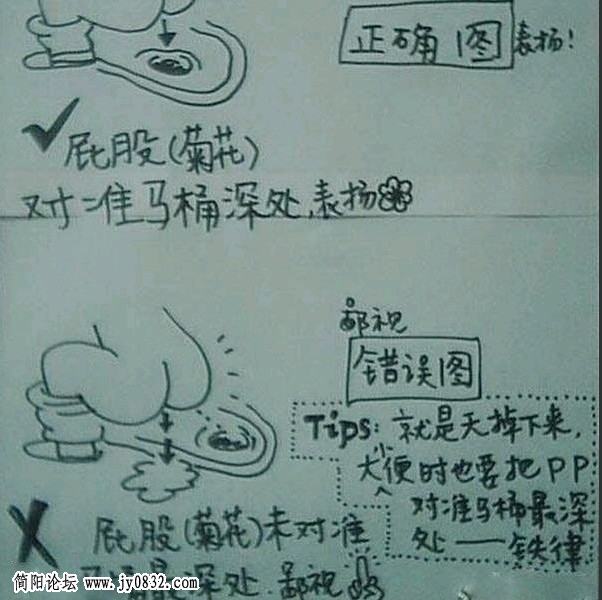 正确图 表扬!
屁股(菊花)
对准马桶深处,表扬
鄙视
错误图
Tips: 就是天掉下来,
大小便时也要把PP
对准马桶最深
处——铁律
屁股(菊花)未对准
深处.鄙视
简阳论坛 www.jy0832.com